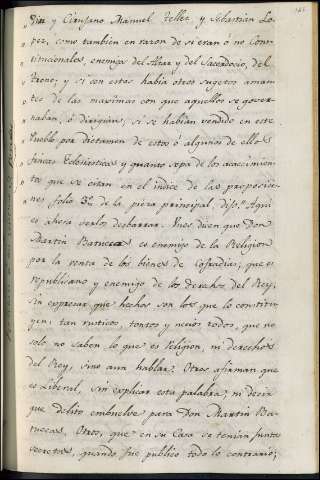 y Cirujano Manuel Tellez, y Sebastian Lo-
pez, como tambien en razon de si eran ó no Cons-
titucionales, enemigos del Altar y del Sacerdocio, del
Trono; y si con estos habia otros sugetos aman-
tes de las maximas con que aquellos se gover-
naban, ó dirigian; si se habian vendido en este
Pueblo por dictamen de estos ó algunos de ellos
fincas Eclesiasticas y quanto sepa de los acaecimien-
tos que se citan en el indice de las proposicio-
nes folio de la pieza principal, dijo: Aqui
es ahora verlos desbarrar. Unos dicen que Don
Martin Batuecas es enemigo de la Religion
por la venta de los bienes de Cofradias; que es
republicano y enemigo de los derechos del Rey,
sin expresar que hechos son los que lo constitu-
yen; tan rusticos, tontos y necios todos, que no
solo no saben lo que es religion, ni derechos
del Rey, sino aun hablar. Otros afirman que
es Liberal, sin explicar esta palabra; ni decir
que delito embuelve para Don Martin Ba-
tuecas. Otros, que en su Casa se tenian juntas
secretas, quando fue publico todo lo contrario;